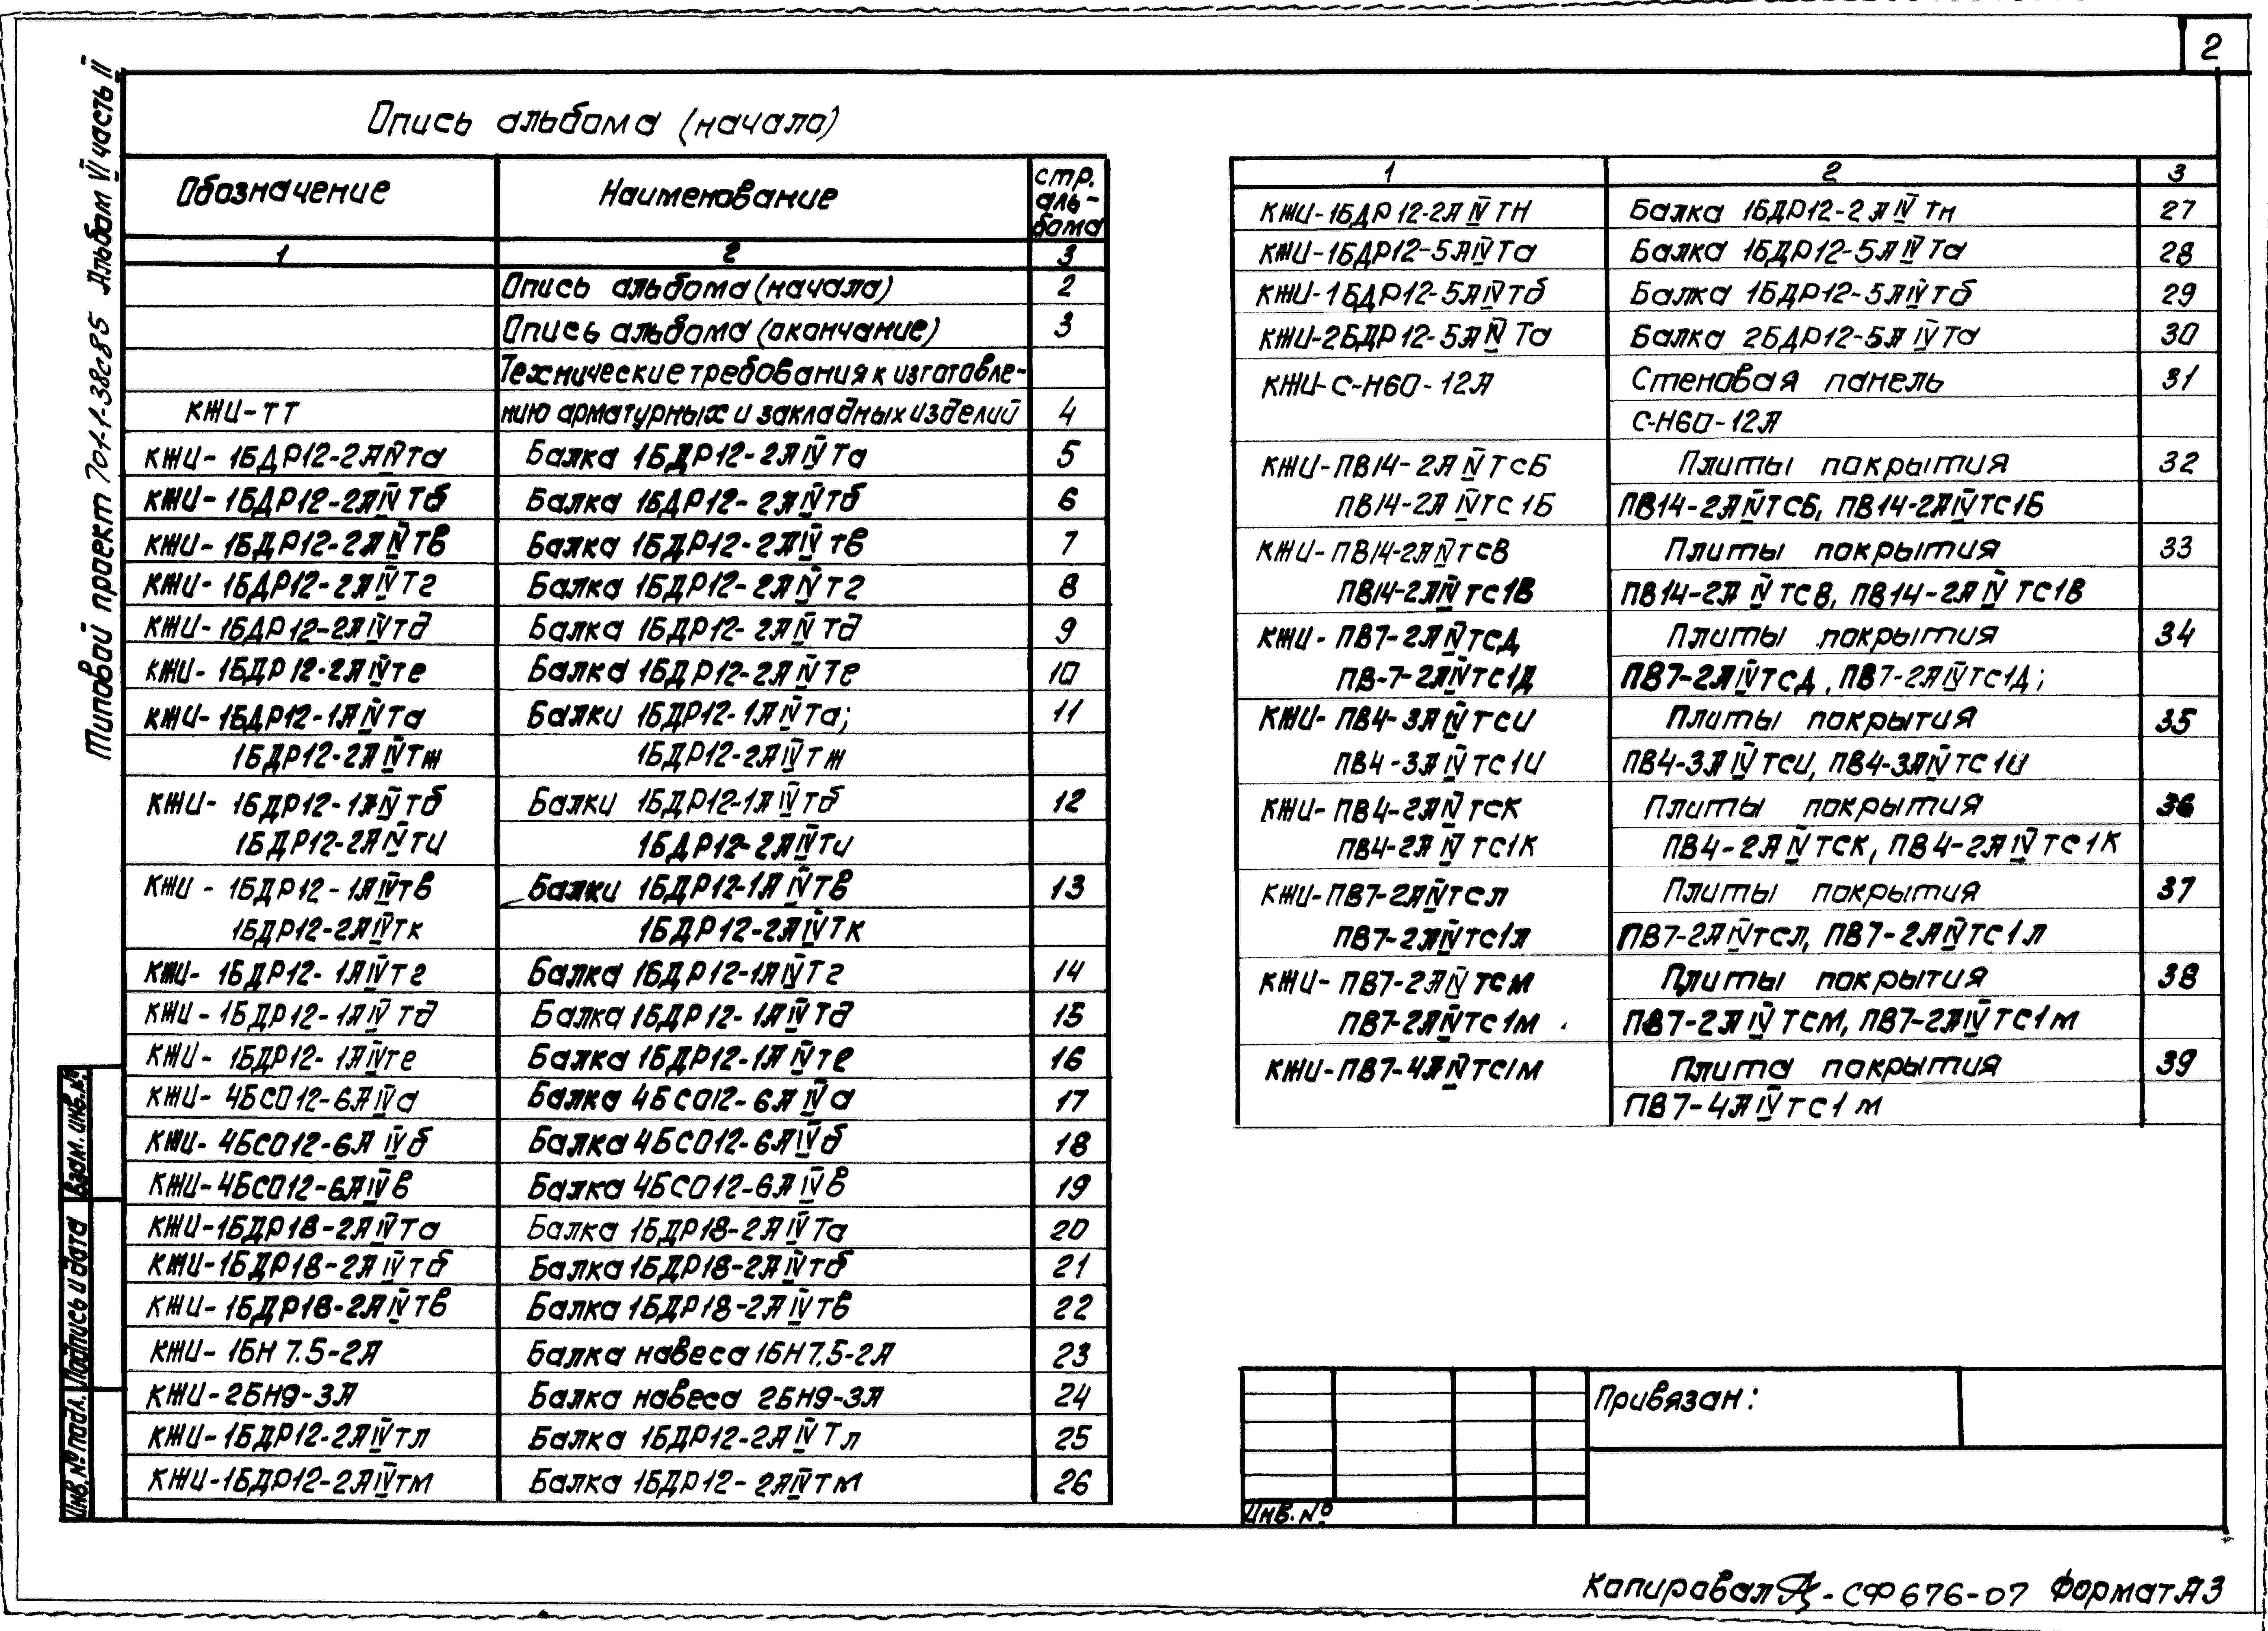 2
Типовой проект 701-1-38с85 Альбом VI часть II
Опись альбома (начало)
Обозначение Наименование стр. аль-бома
1 2 3
Опись альбома (начало) 2
Опись альбома (окончание) 3
Технические требования к изготовле-
КЖИ-ТТ нию арматурных и закладных изделий 4
КЖИ-1БДР12-2АIVта Балка 1БДР12-2АIVта 5
КЖИ-1БДР12-2АIVтб Балка 1БДР12-2АIVтб 6
КЖИ-1БДР12-2АIVтв Балка 1БДР12-2АIVтв 7
КЖИ-1БДР12-2АIVтг Балка 1БДР12-2АIVтг 8
КЖИ-1БДР12-2АIVтд Балка 1БДР12-2АIVтд 9
КЖИ-1БДР12-2АIVте Балка 1БДР12-2АIVте 10
КЖИ-1БДР12-1АIVта Балки 1БДР12-1АIVта; 11
1БДР12-2АIVтж 1БДР12-2АIVтж
КЖИ-1БДР12-1АIVтб Балки 1БДР12-1АIVтб 12
1БДР12-2АIVти 1БДР12-2АIVти
КЖИ-1БДР12-1АIVтв Балки 1БДР12-1АIVтв 13
1БДР12-2АIVтк 1БДР12-2АIVтк
КЖИ-1БДР12-1АIVтг Балка 1БДР12-1АIVтг 14
КЖИ-1БДР12-1АIVтд Балка 1БДР12-1АIVтд 15
КЖИ-1БДР12-1АIVте Балка 1БДР12-1АIVте 16
КЖИ-4БСО12-6АIVа Балка 4БСО12-6АIVа 17
КЖИ-4БСО12-6АIVб Балка 4БСО12-6АIVб 18
КЖИ-4БСО12-6АIVв Балка 4БСО12-6АIVв 19
КЖИ-1БДР18-2АIVта Балка 1БДР18-2АIVта 20
КЖИ-1БДР18-2АIVтб Балка 1БДР18-2АIVтб 21
КЖИ-1БДР18-2АIVтв Балка 1БДР18-2АIVтв 22
КЖИ-1БН7.5-2А Балка навеса 1БН7.5-2А 23
КЖИ-2БН9-3А Балка навеса 2БН9-3А 24
КЖИ-1БДР12-2АIVтл Балка 1БДР12-2АIVтл 25
КЖИ-1БДР12-2АIVтм Балка 1БДР12-2АIVтм 26
1 2 3
КЖИ-1БДР12-2АIVтн Балка 1БДР12-2АIVтн 27
КЖИ-1БДР12-5АIVта Балка 1БДР12-5АIVта 28
КЖИ-1БДР12-5АIVтб Балка 1БДР12-5АIVтб 29
КЖИ-2БДР12-5АIVта Балка 2БДР12-5АIVта 30
КЖИ-С-Н60-12А Стеновая панель 31
С-Н60-12А
КЖИ-ПВ14-2АIVТСБ Плиты покрытия 32
ПВ14-2АIVТС1Б ПВ14-2АIVТСБ, ПВ14-2АIVТС1Б
КЖИ-ПВ14-2АIVТСВ Плиты покрытия 33
ПВ14-2АIVТС1В ПВ14-2АIVТСВ, ПВ14-2АIVТС1В
КЖИ-ПВ7-2АIVТСД Плиты покрытия 34
ПВ-7-2АIVТС1Д ПВ7-2АIVТСД, ПВ7-2АIVТС1Д;
КЖИ-ПВ4-3АIVТСИ Плиты покрытия 35
ПВ4-3АIVТС1И ПВ4-3АIVТСИ, ПВ4-3АIVТС1И
КЖИ-ПВ4-2АIVТСК Плиты покрытия 36
ПВ4-2АIVТС1К ПВ4-2АIVТСК, ПВ4-2АIVТС1К
КЖИ-ПВ7-2АIVТСЛ Плиты покрытия 37
ПВ7-2АIVТС1Л ПВ7-2АIVТСЛ, ПВ7-2АIVТС1Л
КЖИ-ПВ7-2АIVТСМ Плиты покрытия 38
ПВ7-2АIVТС1М ПВ7-2АIVТСМ, ПВ7-2АIVТС1М
КЖИ-ПВ7-4АIVТС1М Плита покрытия 39
ПВ7-4АIVТС1М
Взам. инв. №
Подпись и дата
Инв. № подл.
Привязан:
Инв. №
Копировал - СФ 676-07 Формат А3